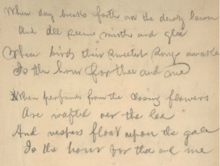 When day breaks forth over the dewy lawn
And all seems mirth and glee
When birds their sweetest songs
Is the hour for thee and me
When perfumes from the flowers
Are wafted over the lea
And vespers float upon the gale
Is the hour for thee and me